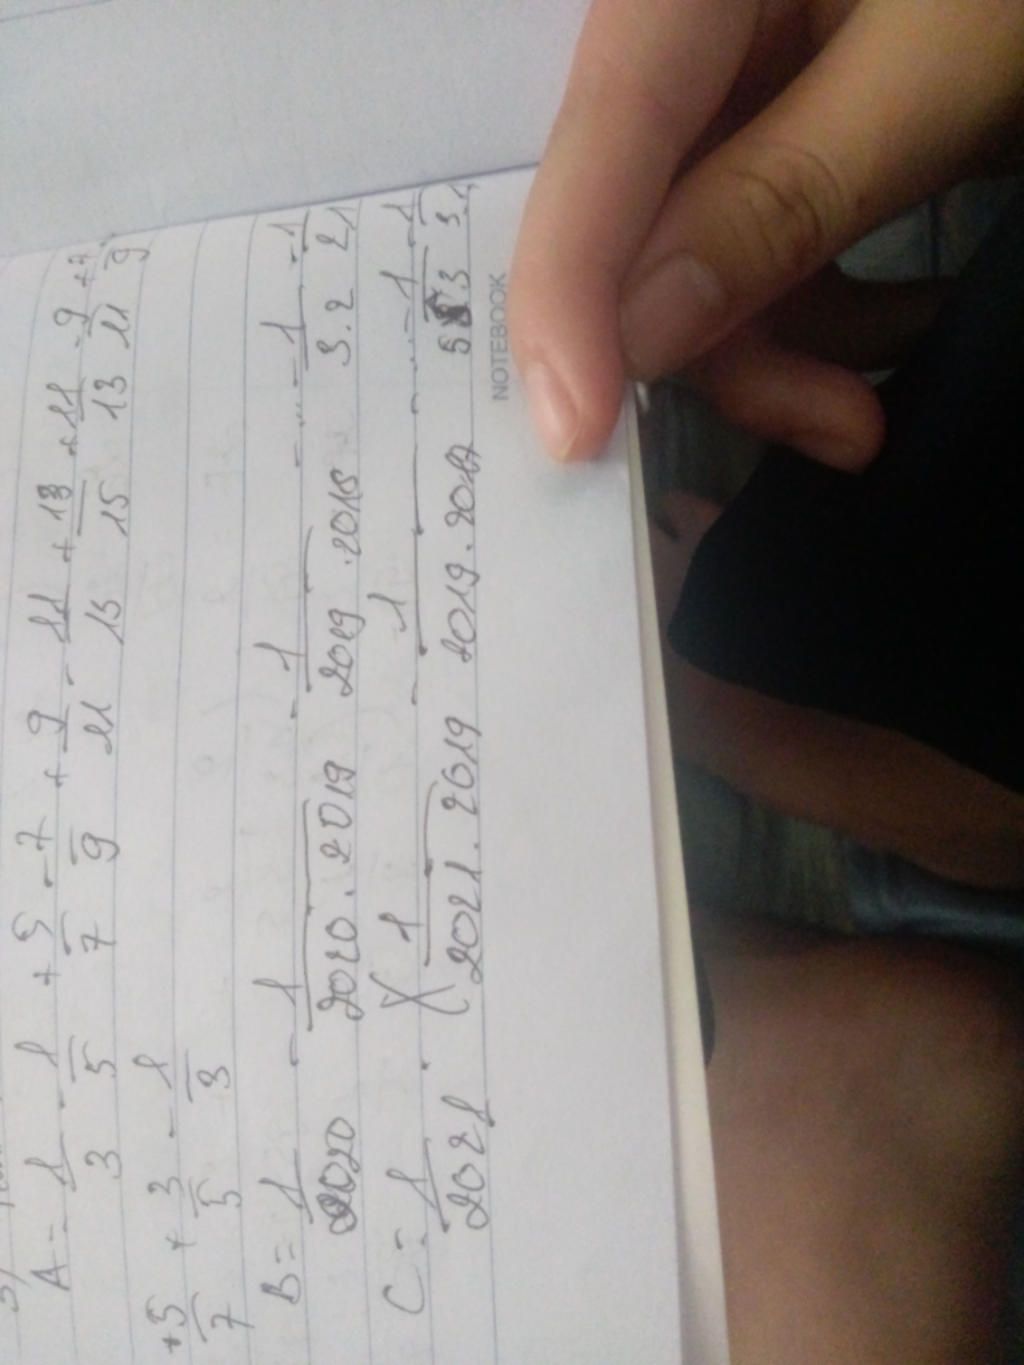 A = 1/3 - 1/5 + 5/7 - 7/9 + 9/11 - 11/13 + 13/15 + 11/13 - 9/11 + 7/9
+ 5/7 + 3/5 - 1/3
B = 1/2020 - 1/2020.2019 - 1/2019.2018 - ... - 1/3.2 - 1/2.1
C = 1/2021 . ( 1/2021.2019 - 1/2019.2017 - ... - 1/5.3 - 1/3.1
NOTEBOOK